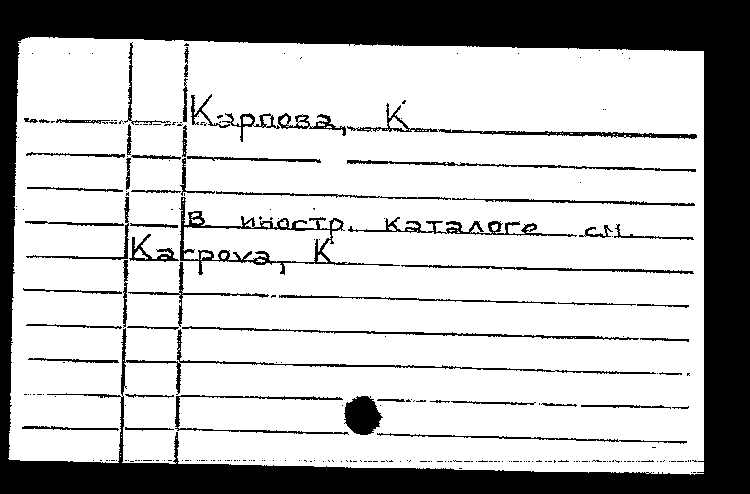 Карпова, К
в иностр. каталоге см.
Karpova, K